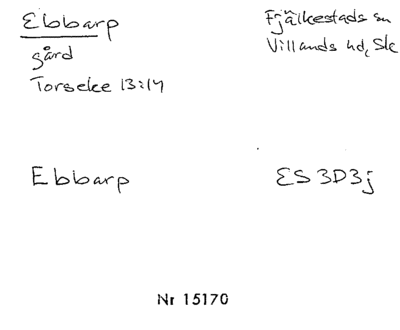 Ebbarp
gård
Torseke 13:14
Fjälkestads sn
Villands hd, Sk
Ebbarp
ES 3D3j
Nr 15170